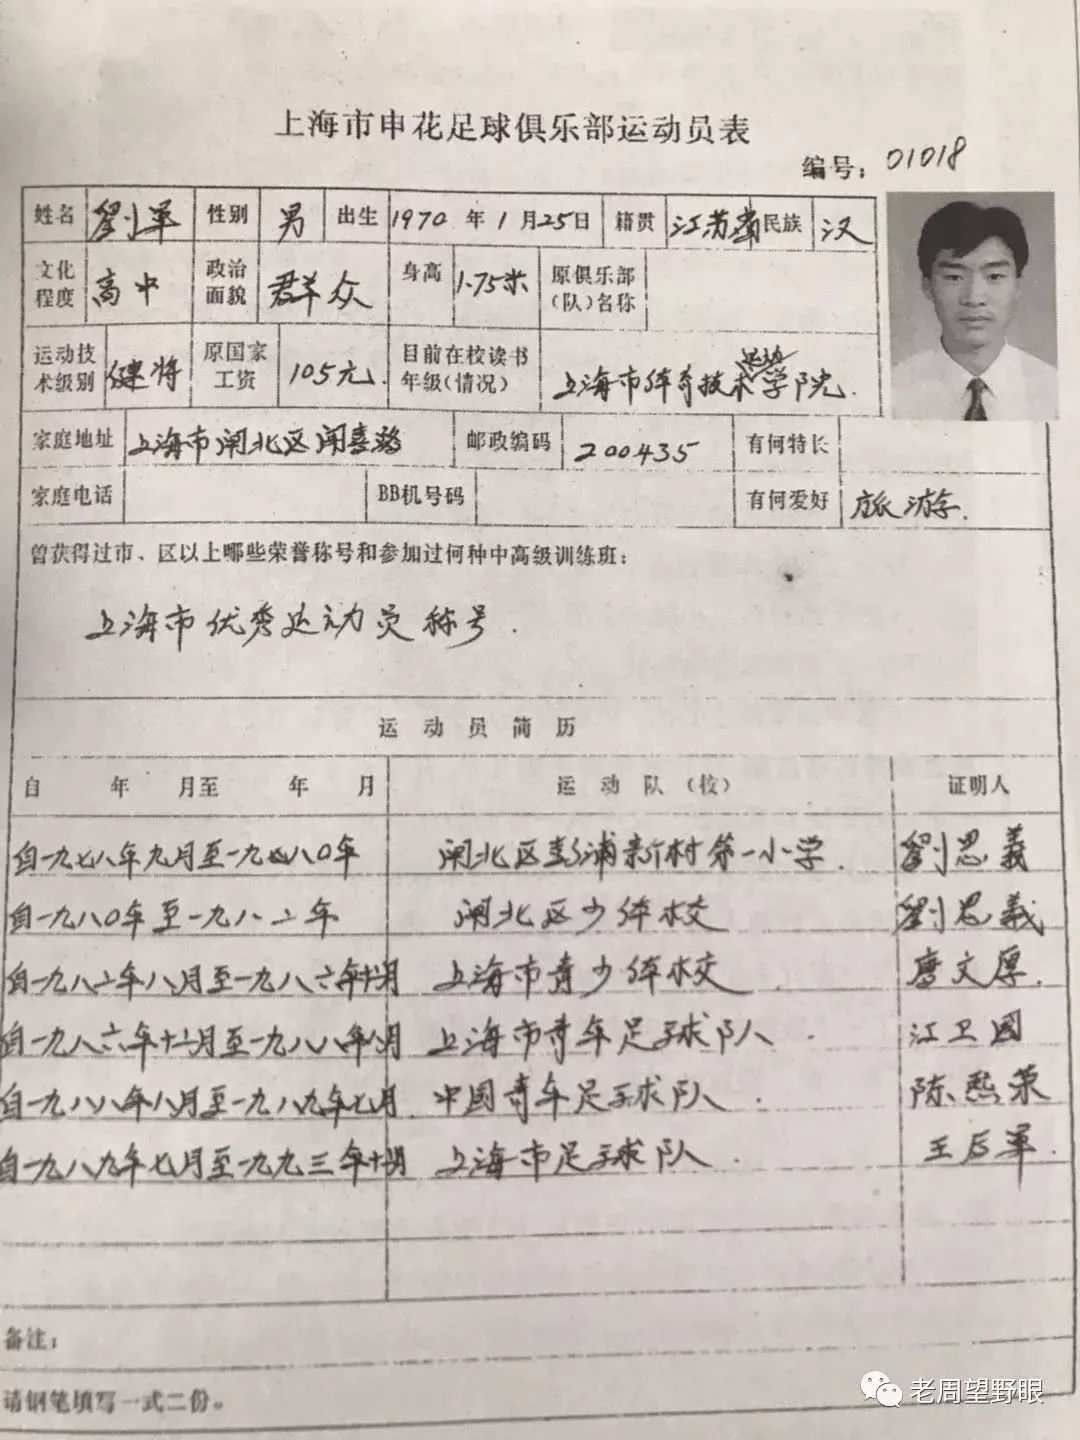 上海市申花足球俱乐部运动员表
编号：01018
姓名 劉军 性别 男 出生 1970 年 1 月 25 日 籍贯 江苏省 民族 汉
文化程度 高中 政治面貌 群众 身高 1.75米 原俱乐部（队）名称
运动技术级别 健将 原国家工资 105元. 目前在校读书年级（情况） 上海市体育技术学院.
家庭地址 上海市闸北区闻喜路 邮政编码 200435 有何特长
家庭电话 BB机号码 有何爱好 旅游.
曾获得过市、区以上哪些荣誉称号和参加过何种中高级训练班：
上海市优秀运动员称号.
运动员简历
自 年 月至 年 月 运动队（校） 证明人
自一九七八年九月至一九八〇年 闸北区彭浦新村第一小学. 劉思義
自一九八〇年至一九八二年 闸北区少体校 劉思義
自一九八二年八月至一九八六年十二月 上海市青少体校 唐文厚.
自一九八六年十二月至一九八八年八月 上海市青年足球队. 江卫国
自一九八八年八月至一九八九年七月. 中国青年足球队. 陈熙荣
自一九八九年七月至一九九三年十二月 上海市足球队. 王后军.
备注：
请钢笔填写一式二份。
老周望野眼